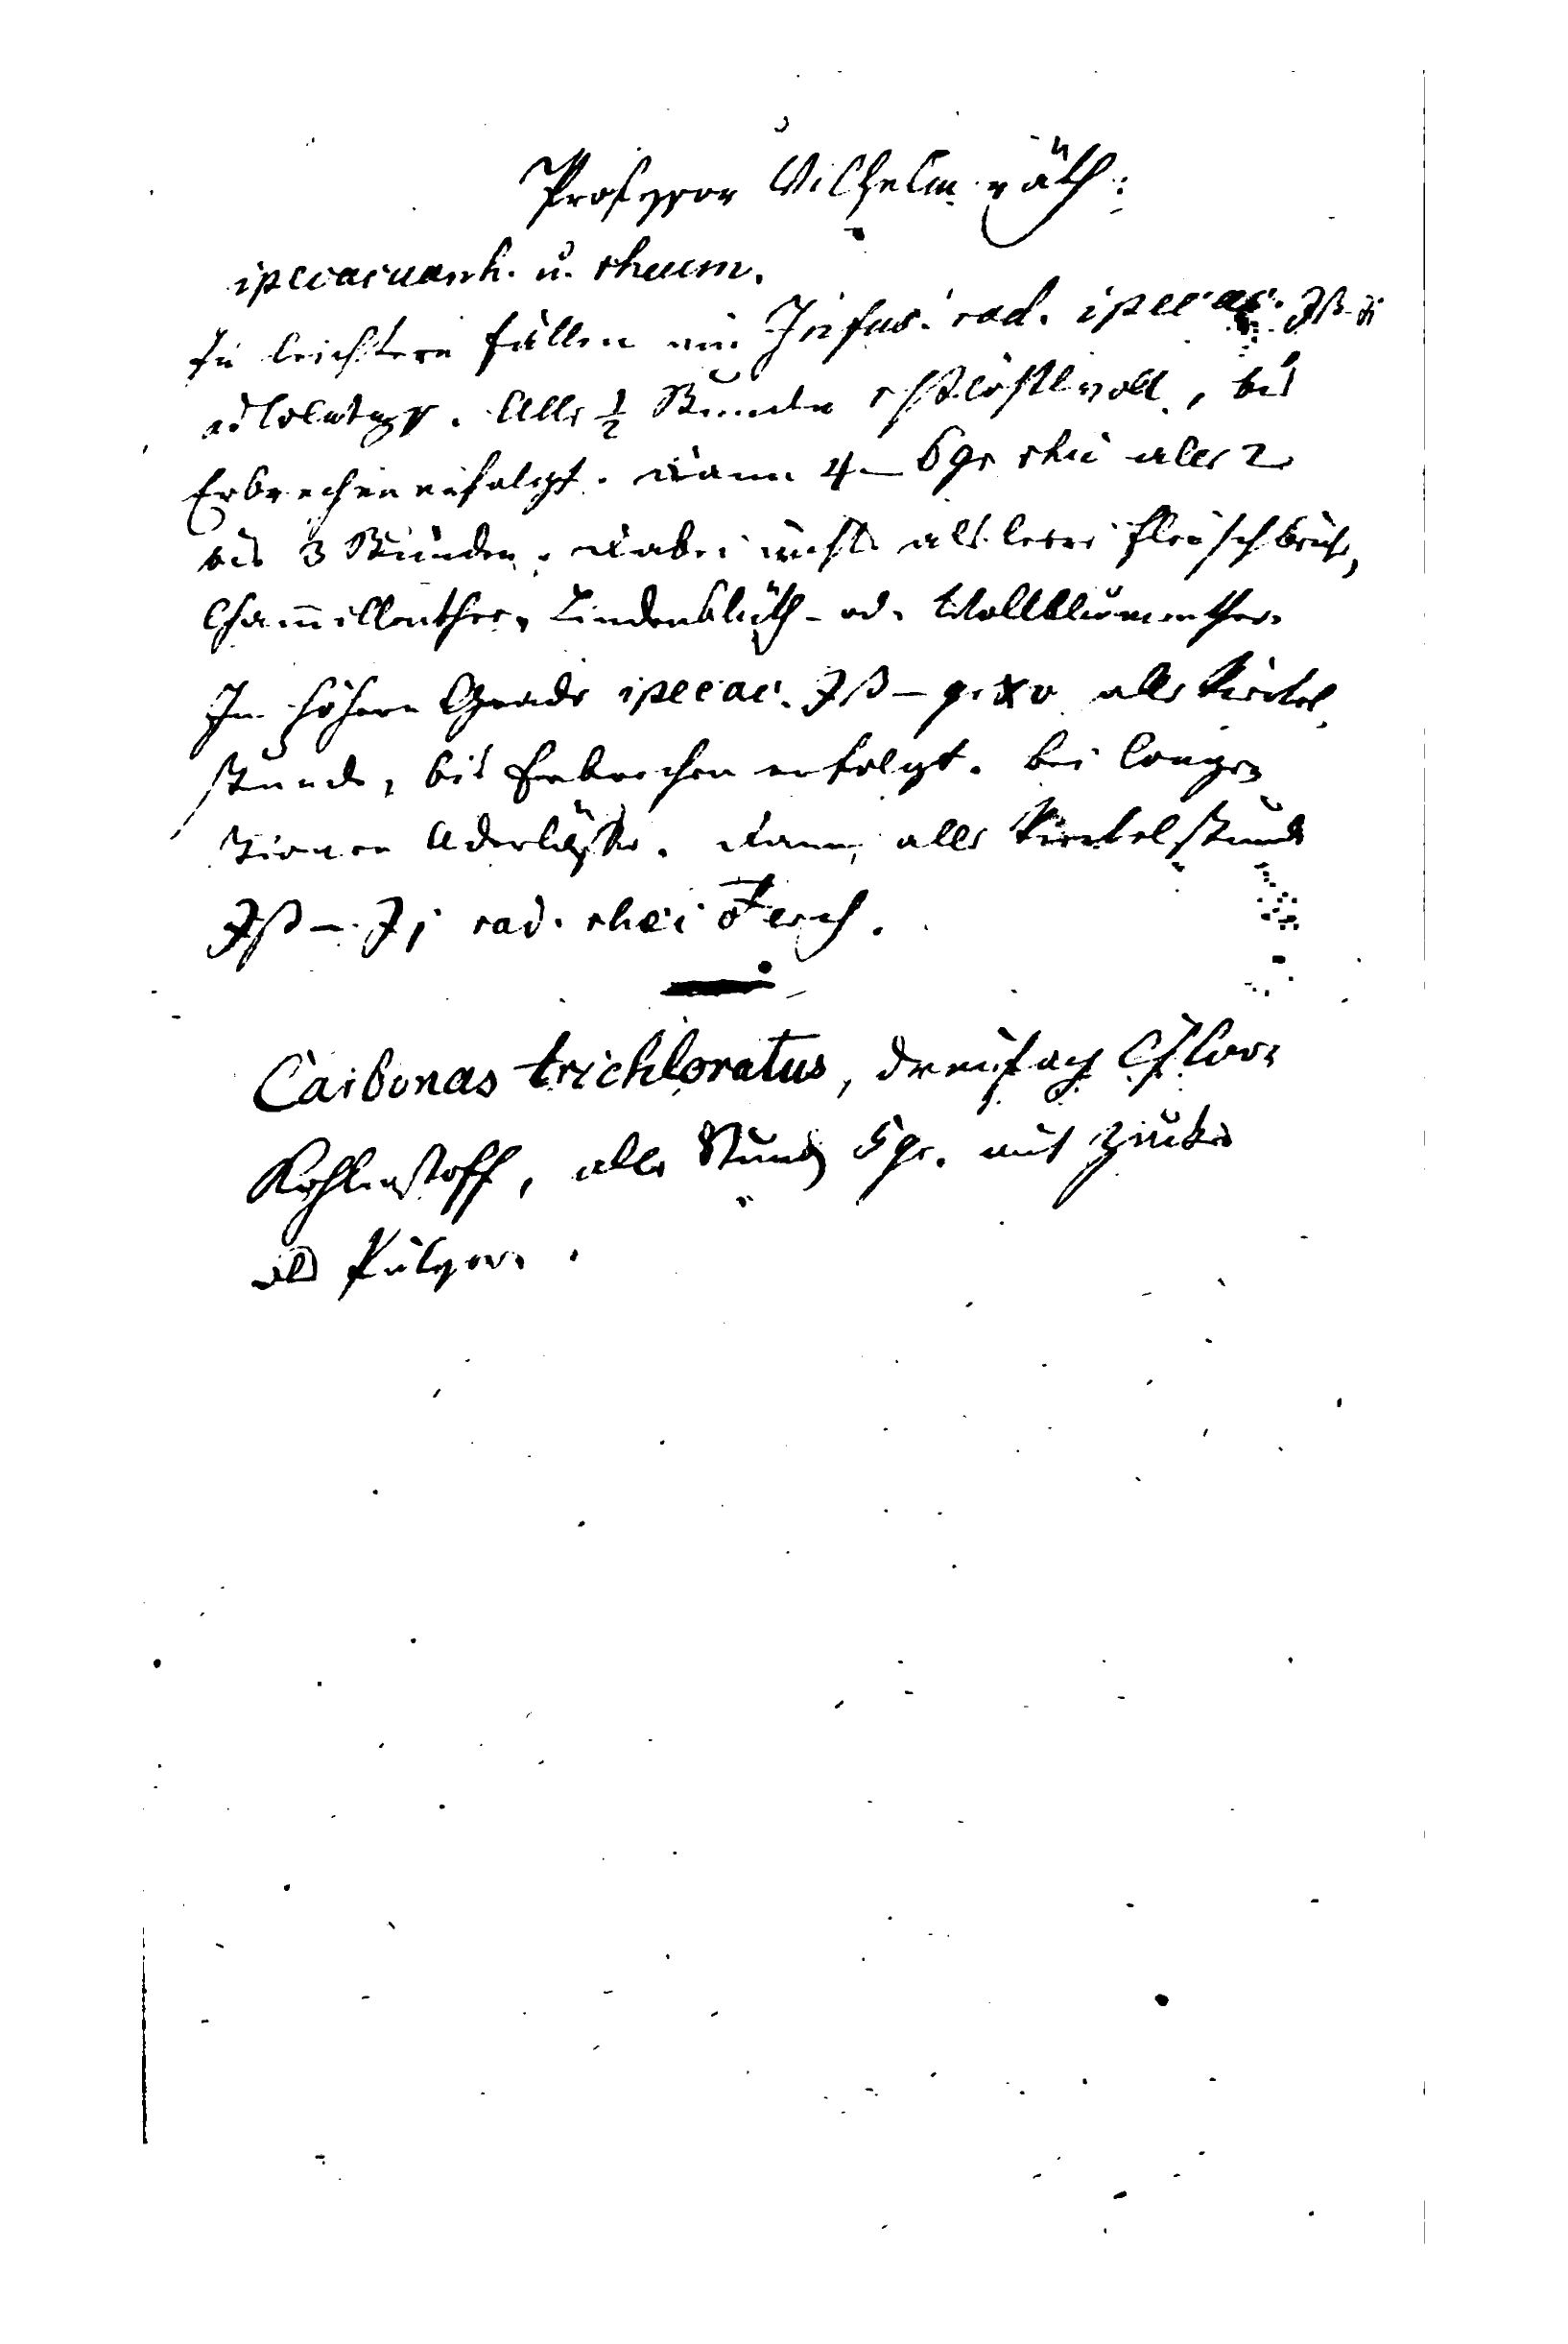 Professor Wilhelm räth:
ipecacuanh. u. rheum.
In leichtern Fällen ein Infus. rad. ipecac. ʒß-j
ad Alle ½ Stunde 1 Eßlöffelvoll, bis
Erbrechen erfolgt. Dann 4–6 gr rhei alle 2
bis 3 Stunden. Dabei nichts als leere Fleischbrüh,
Chamillenthee, Lindenblüth- od. Wollblumenthee.
Im höhern Grade ipecac. ʒß – gr. xv alle Viertel
stunde, bis Erbrechen erfolgt. Bei Conges
tionen Aderlässe. Dann alle Viertelstunde
ʒß – ʒj rad. rhei
Carbonas trichloratus, dreifach Chlor
Kohlenstoff, alle Stund 5 gr. mit Zucker
als Pulver.